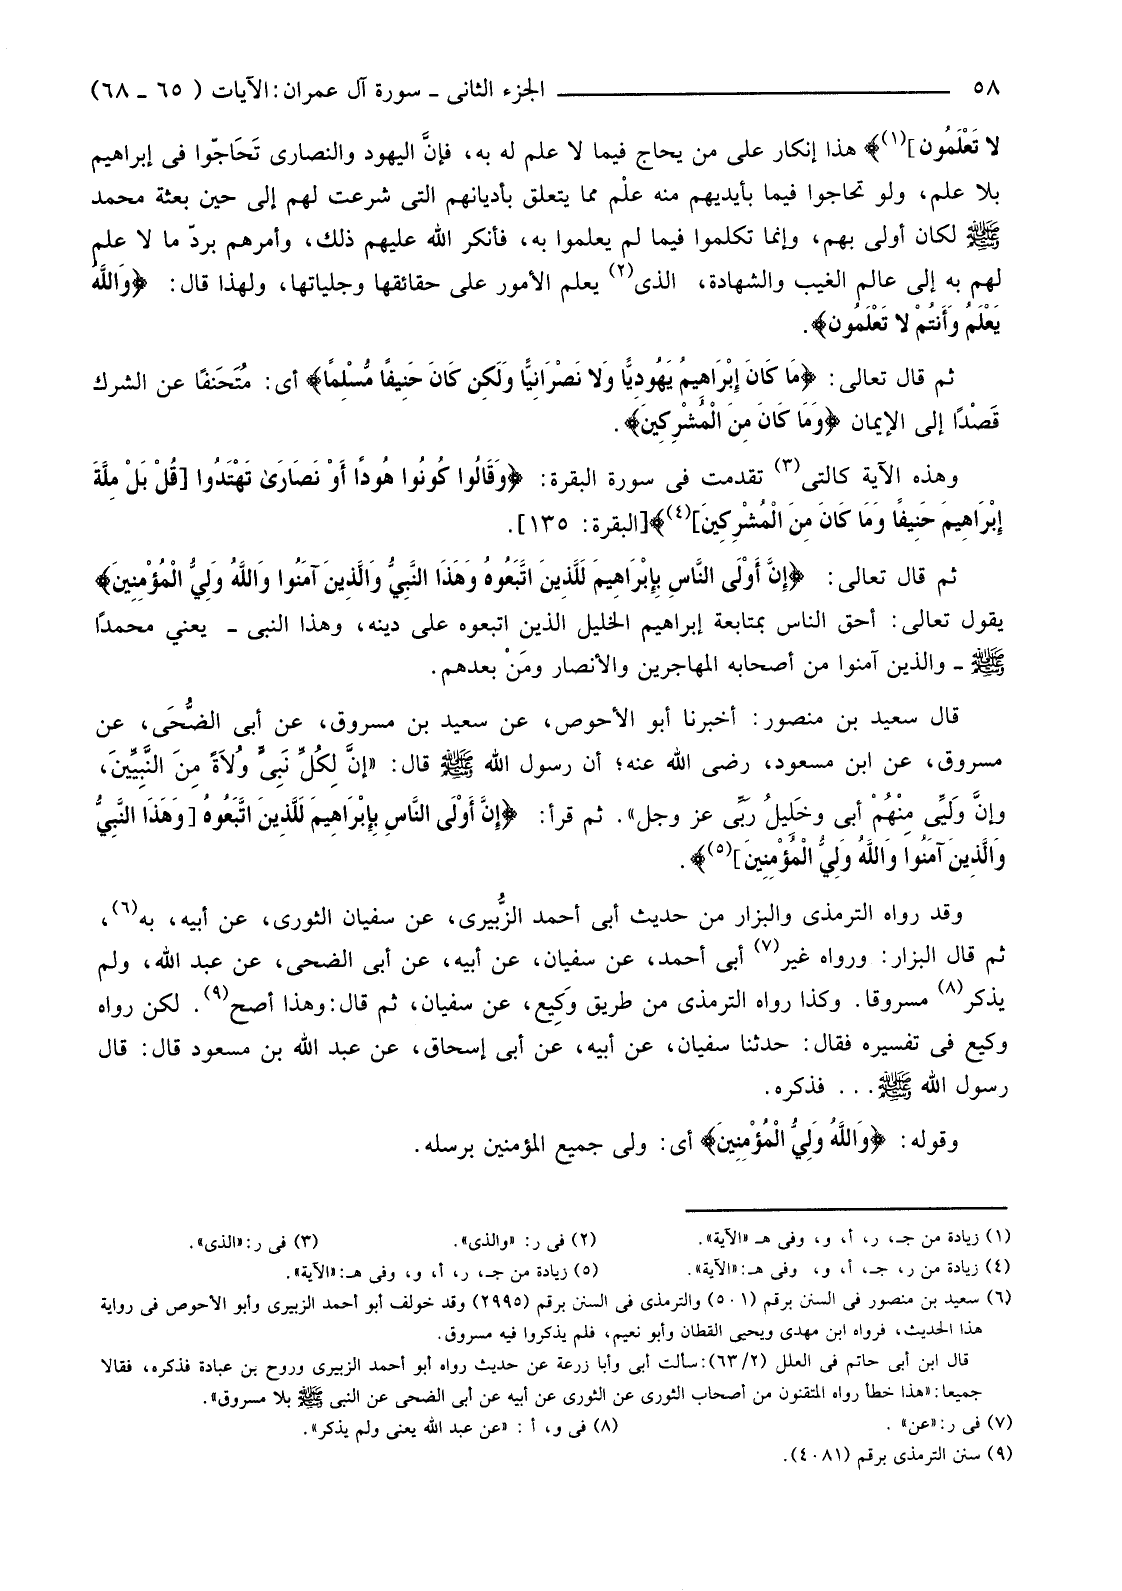 ٥٨ ــــــــــــــــــــــــــــــ الجزء الثانى ـ سورة آل عمران : الآيات ( ٦٥ ـ ٦٨)
لا تَعْلَمُون ](١)﴾ هذا إنكار على من يحاج فيما لا علم له به، فإنَّ اليهود والنصارى تَحَاجّوا فى إبراهيم
بلا علم، ولو تحاجوا فيما بأيديهم منه علْم مما يتعلق بأديانهم التى شرعت لهم إلى حين بعثة محمد
ﷺ لكان أولى بهم، وإنما تكلموا فيما لم يعلموا به، فأنكر الله عليهم ذلك، وأمرهم بردّ ما لا علم
لهم به إلى عالم الغيب والشهادة، الذى(٢) يعلم الأمور على حقائقها وجلياتها، ولهذا قال: ﴿وَاللَّهُ
يَعْلَمُ وَأَنتُمْ لا تَعْلَمُون﴾.
ثم قال تعالى: ﴿مَا كَانَ إِبْرَاهِيمُ يَهُودِيًّا وَلا نَصْرَانِيًّا وَلَكِن كَانَ حَنِيفًا مُّسْلِمًا﴾ أى: مُتَحَنفًا عن الشرك
قَصْدًا إلى الإيمان ﴿وَمَا كَانَ مِنَ الْمُشْرِكِينَ﴾.
وهذه الآية كالتى(٣) تقدمت فى سورة البقرة: ﴿وَقَالُوا كُونُوا هُودًا أَوْ نَصَارَىٰ تَهْتَدُوا [قُلْ بَلْ مِلَّةَ
إِبْرَاهِيمَ حَنِيفًا وَمَا كَانَ مِنَ الْمُشْرِكِينَ](٤)﴾[البقرة: ١٣٥].
ثم قال تعالى: ﴿إِنَّ أَوْلَى النَّاسِ بِإِبْرَاهِيمَ لَلَّذِينَ اتَّبَعُوهُ وَهَذَا النَّبِيُّ وَالَّذِينَ آمَنُوا وَاللَّهُ وَلِيُّ الْمُؤْمِنِينَ﴾
يقول تعالى: أحق الناس بمتابعة إبراهيم الخليل الذين اتبعوه على دينه، وهذا النبى ـ يعني محمدًا
ﷺ ـ والذين آمنوا من أصحابه المهاجرين والأنصار ومَنْ بعدهم.
قال سعيد بن منصور: أخبرنا أبو الأحوص، عن سعيد بن مسروق، عن أبى الضُّحَى، عن
مسروق، عن ابن مسعود، رضى الله عنه؛ أن رسول الله ﷺ قال: «إنَّ لِكُلِّ نَبِىٍّ وُلاَةً مِنَ النَّبِيِّينَ،
وإنَّ وَلَيِّى مِنْهُمْ أبى وخَلِيلُ رَبِّى عز وجل». ثم قرأ: ﴿إِنَّ أَوْلَى النَّاسِ بِإِبْرَاهِيمَ لَلَّذِينَ اتَّبَعُوهُ [وَهَذَا النَّبِيُّ
وَالَّذِينَ آمَنُوا وَاللَّهُ وَلِيُّ الْمُؤْمِنِينَ](٥)﴾.
وقد رواه الترمذى والبزار من حديث أبى أحمد الزُّبيرى، عن سفيان الثورى، عن أبيه، به(٦)،
ثم قال البزار: ورواه غير(٧) أبى أحمد، عن سفيان، عن أبيه، عن أبى الضحى، عن عبد الله، ولم
يذكر(٨) مسروقا. وكذا رواه الترمذى من طريق وَكِيع، عن سفيان، ثم قال: وهذا أصح(٩). لكن رواه
وكيع فى تفسيره فقال: حدثنا سفيان، عن أبيه، عن أبى إسحاق، عن عبد الله بن مسعود قال: قال
رسول الله ﷺ... فذكره.
وقوله: ﴿وَاللَّهُ وَلِيُّ الْمُؤْمِنِينَ﴾ أى: ولى جميع المؤمنين برسله.
(١) زيادة من جـ، ر، أ، و، وفى هـ «الآية». (٢) فى ر: «والذى». (٣) فى ر: «الذى».
(٤) زيادة من ر، جـ، أ، و، وفى هـ: «الآية». (٥) زيادة من جـ، ر، أ، و، وفى هـ: «الآية».
(٦) سعيد بن منصور فى السنن برقم (٥٠١) والترمذى فى السنن برقم (٢٩٩٥) وقد خولف أبو أحمد الزبيرى وأبو الأحوص فى رواية
هذا الحديث، فرواه ابن مهدى ويحيى القطان وأبو نعيم، فلم يذكروا فيه مسروق.
قال ابن أبى حاتم فى العلل (٢/ ٦٣): سألت أبى وأبا زرعة عن حديث رواه أبو أحمد الزبيرى وروح بن عبادة فذكره، فقالا
جميعا: «هذا خطأ رواه المتقنون من أصحاب الثورى عن الثورى عن أبيه عن أبى الضحى عن النبى ﷺ بلا مسروق».
(٧) فى ر: «عن» . (٨) فى و، أ : «عن عبد الله يعنى ولم يذكر».
(٩) سنن الترمذى برقم (٤٠٨١).